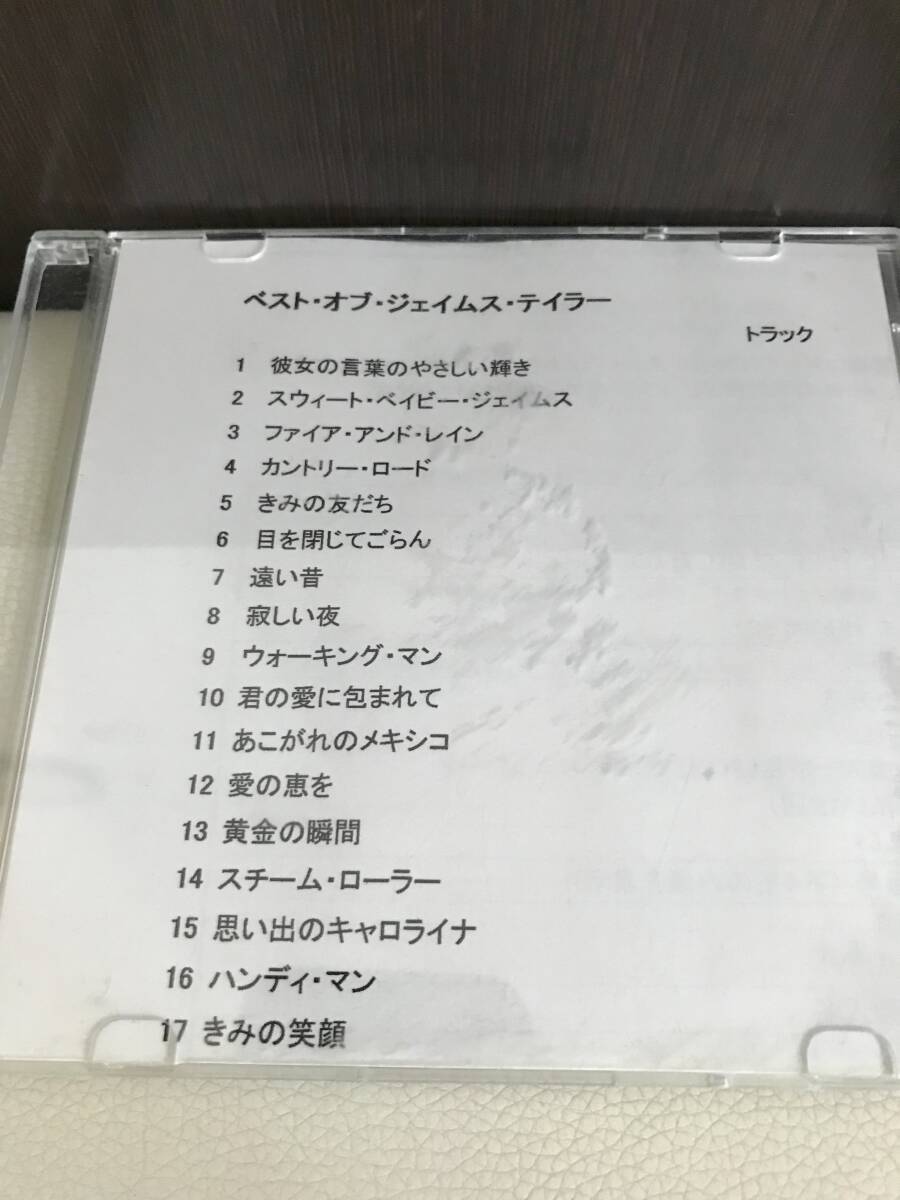 ベスト・オブ・ジェイムス・テイラー
トラック
1 彼女の言葉のやさしい輝き
2 スウィート・ベイビー・ジェイムス
3 ファイア・アンド・レイン
4 カントリー・ロード
5 きみの友だち
6 目を閉じてごらん
7 遠い昔
8 寂しい夜
9 ウォーキング・マン
10 君の愛に包まれて
11 あこがれのメキシコ
12 愛の恵を
13 黄金の瞬間
14 スチーム・ローラー
15 思い出のキャロライナ
16 ハンディ・マン
17 きみの笑顔